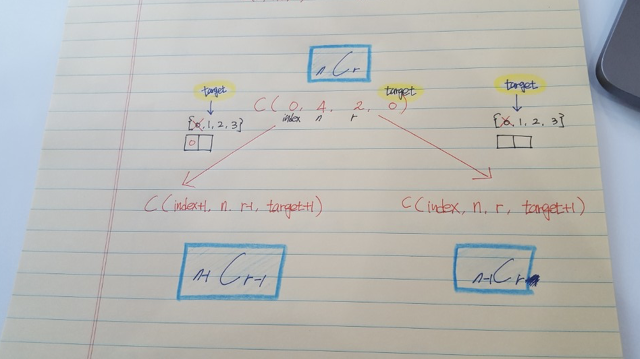 nCr
target target target
C( 0, 4, 2, 0)
index n r
[0, 1, 2, 3] [0, 1, 2, 3]
0
C(index+1, n, r-1, target+1) C(index, n, r, target+1)
n-1Cr-1 n-1Cr